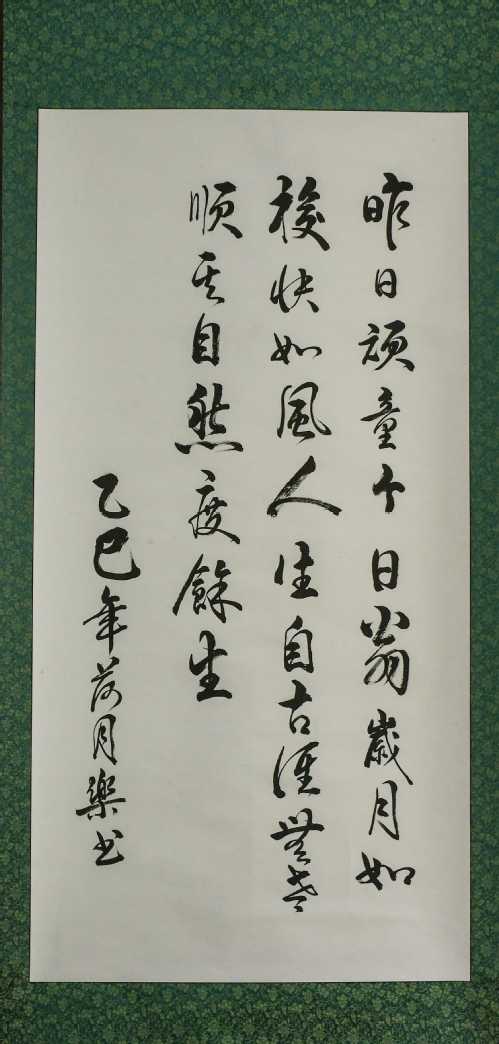 昨日頑童今日翁歲月如
梭快如風人生自古誰無老
順其自然度餘生
乙巳年荷月樂书